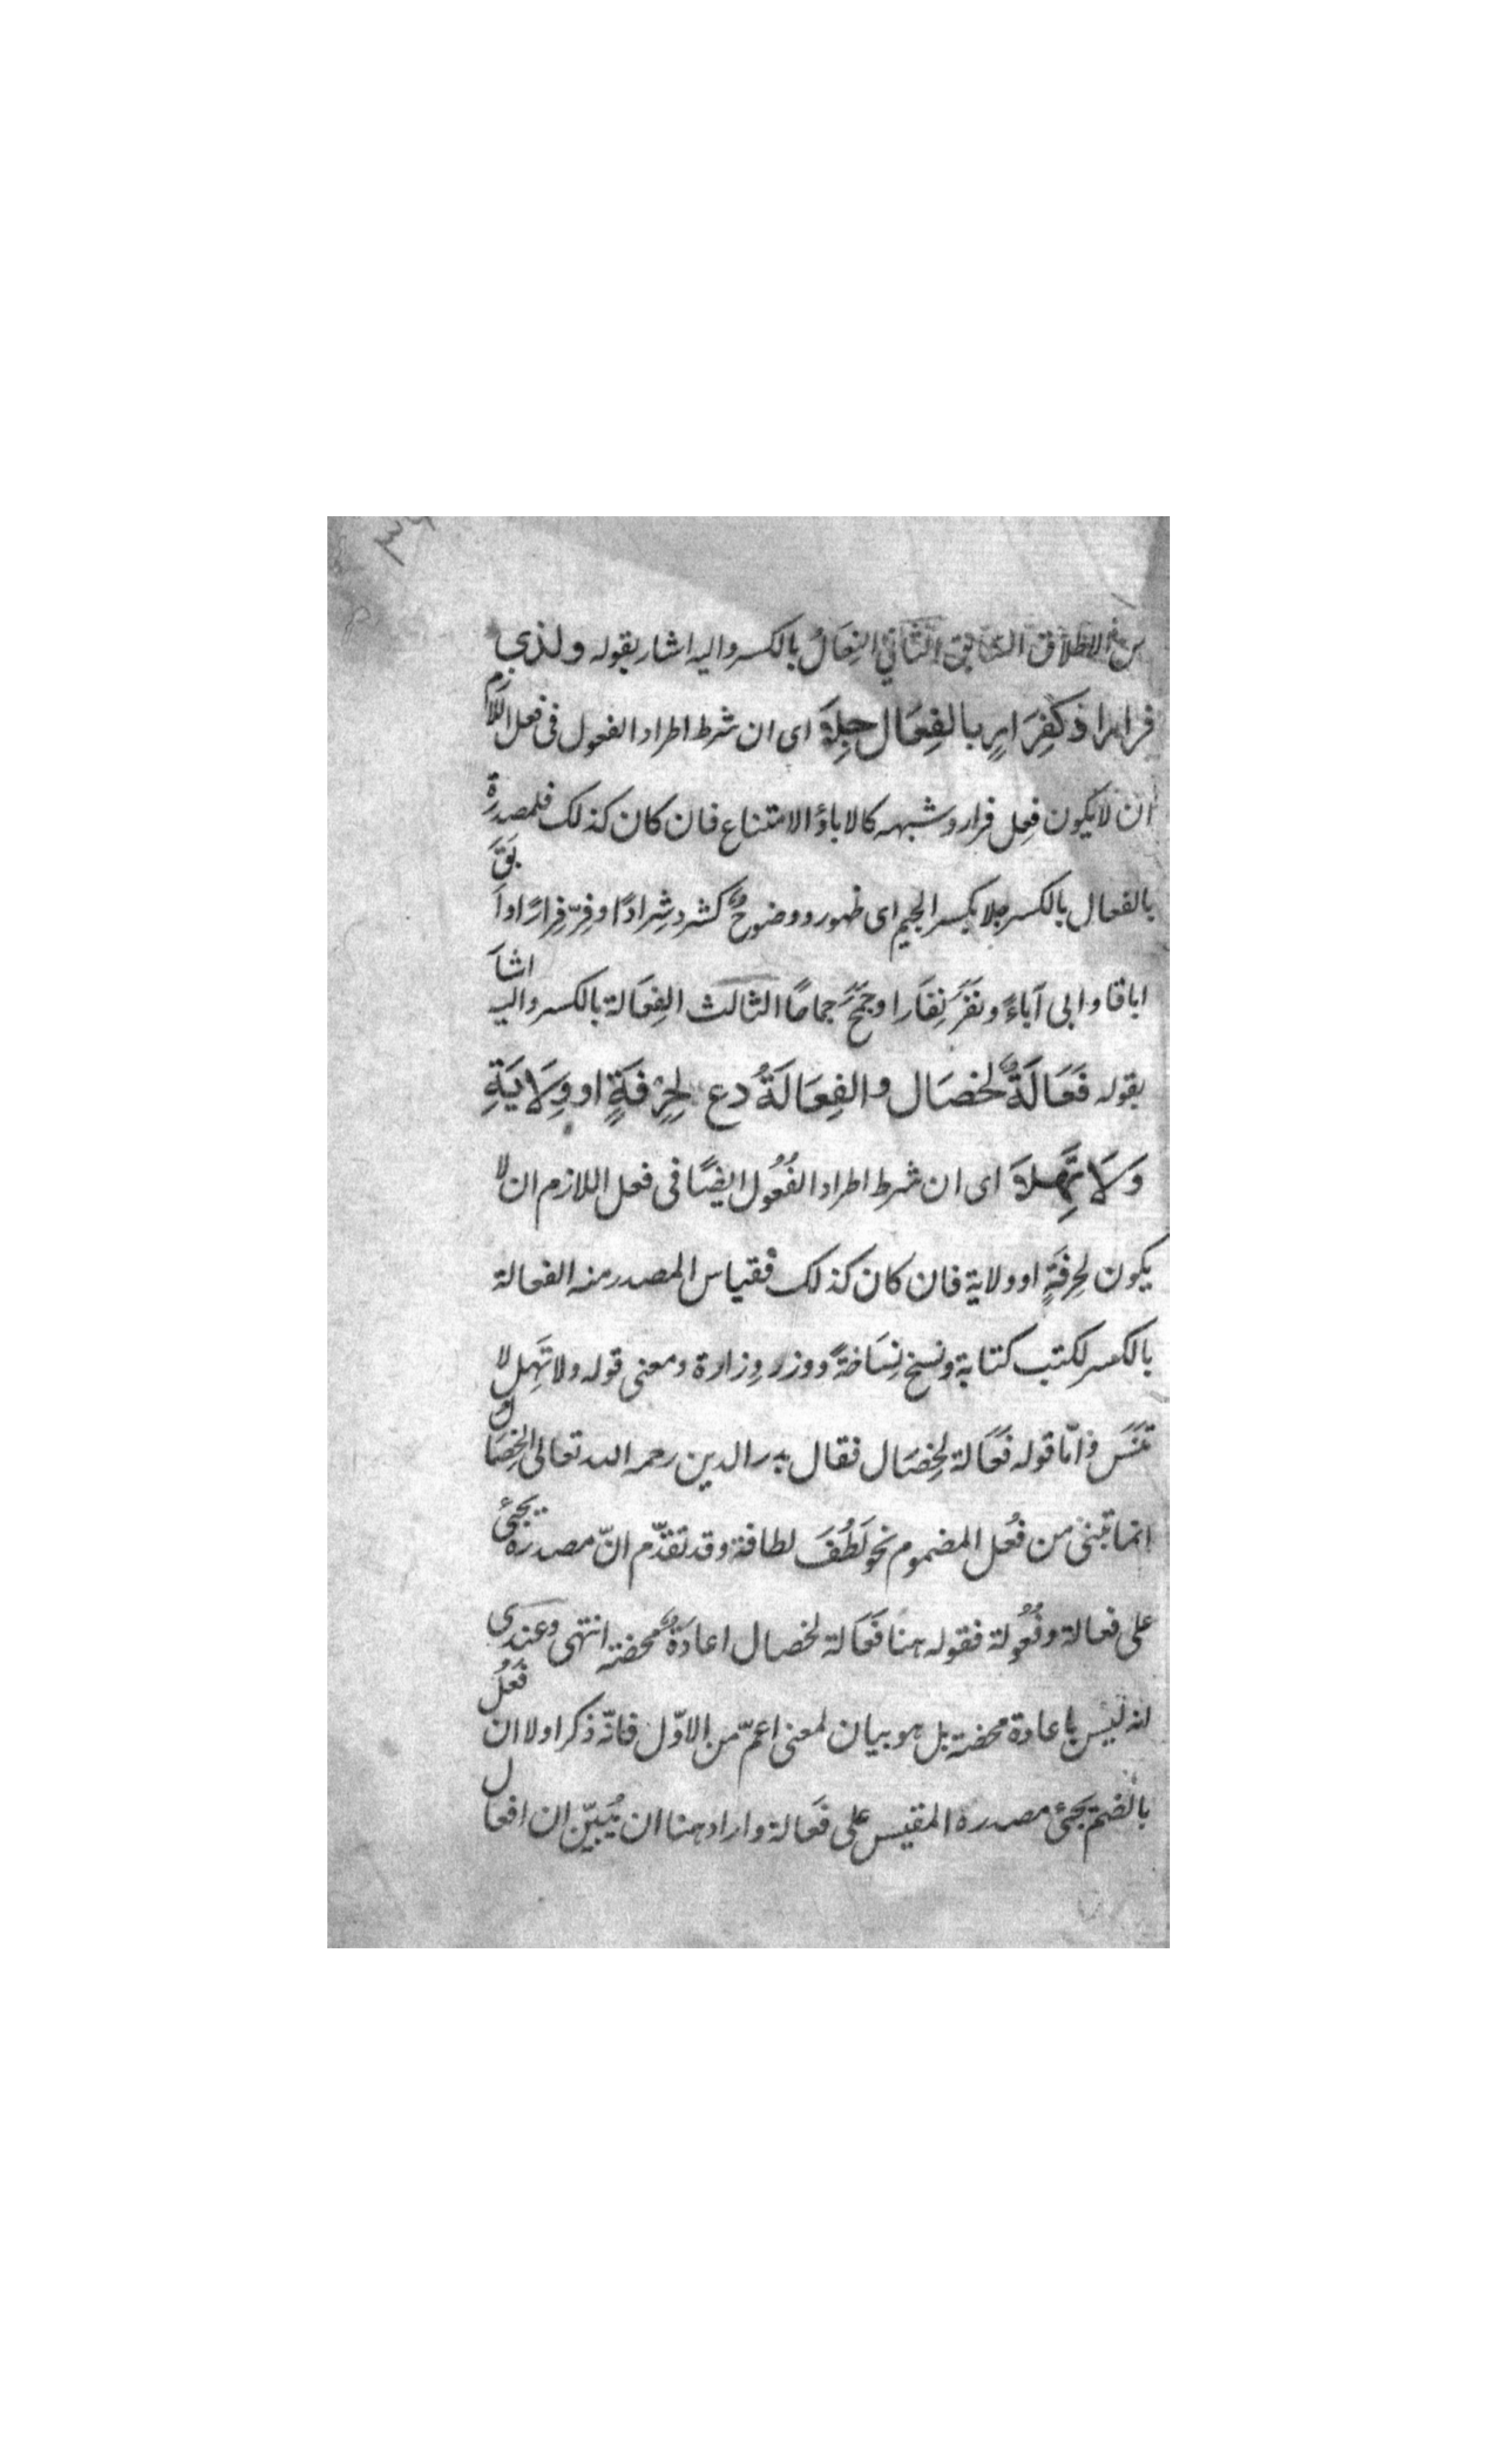 ٣٦
من الاطلاق السابق الثاني الفِعَالُ بالكسر واليه اشار بقوله ولذي
فرار او كَفِرَارٍ بالفِعَال جِلَا اى ان شرط اطراد الفعول فى فعل اللازم
ان لا يكون فِعل فرار وشبهه كالاباء والامتناع فان كان كذلك فلمصدره
بالفعال بالكسر جلا بكسر الجيم اى ظهور ووضوح كشرد شِرادًا وفرّ فِرارًا وابَقَ
اباقا وابى آباءً ونَفَرَ نِفَارا وجَمَحَ جماحًا الثالث الفِعَالة بالكسر واليه اشا
بقوله فَعَالَةٌ لخصَال والفِعَالَةُ دع لِحِرْفَةٍ او وِلَايَةِ
وَلَا تَهِلَا اى ان شرط اطراد الفُعُول ايضًا فى فعل اللازم ان لا
يكون لحِرفَةٍ او ولاية فان كان كذلك فقياس المصدر منه الفعالة
بالكسر لكتب كتابة ونسخ نِسَاخةً ووزر وِزارة ومعنى قوله ولا تَهِل لا
تَنسَ وامّا قوله فَعَالة لِخِصَال فقال بدر الدين رحمه الله تعالى الخِصَال
انما تبنى من فُعل المضموم نحو لَطُفَ لطافة وقد تقدّم انّ مصدره يجئ
على فعالة وفُعُولة فقوله هنا فَعَالة لخصال اعادَةٌ محضة انتهى وعندى
انه ليس باعادة محضة بل هو بيان لمعنى اعمّ من الاوّل فانّه ذكر اولا ان فَعُلَ
بالضم يجئ مصدره المقيس على فَعَالة واراد هنا ان يُبيّن ان افعال